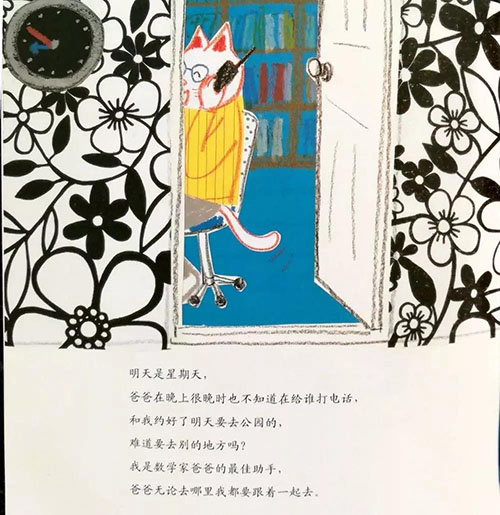 明天是星期天，
爸爸在晚上很晚时也不知道在给谁打电话，
和我约好了明天要去公园的，
难道要去别的地方吗？
我是数学家爸爸的最佳助手，
爸爸无论去哪里我都要跟着一起去。